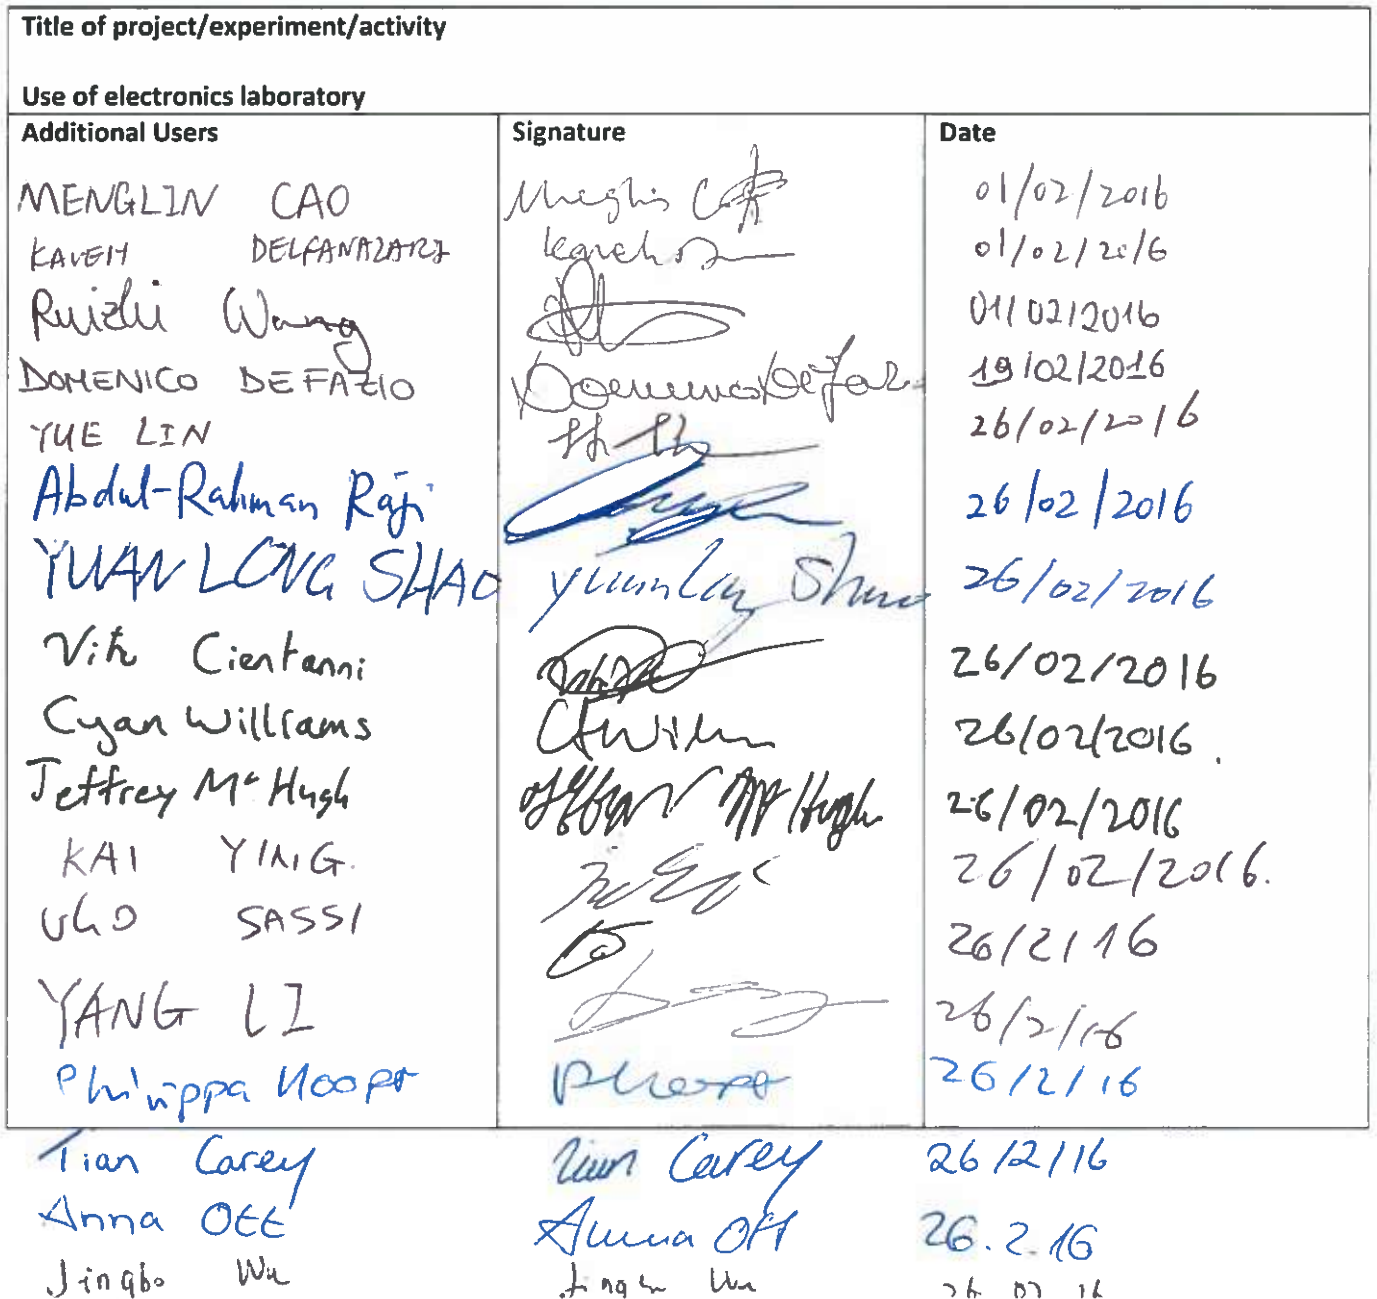 Title of project/experiment/activity
Use of electronics laboratory
Additional Users Signature Date
MENGLIN CAO 01/02/2016
KAVEH DELFANAZARI 01/02/2016
Ruizhi Wang 01/02/2016
DOMENICO DE FAZIO Domenico De Faz 19/02/2016
YUE LIN 26/02/2016
Abdul-Rahman Raji 26/02/2016
YUAN LONG SHAO Yuanlong Shao 26/02/2016
Vito Cientanni 26/02/2016
Cyan Williams 26/02/2016.
Jeffrey McHugh McHugh 26/02/2016
KAI YING. 26/02/2016.
UGO SASSI 26/2/16
YANG LI 26/2/16
Philippa Hooper PHooper 26/2/16
Tian Carey Tian Carey 26/2/16
Anna Ott Anna Ott 26.2.16
Jingbo Wu Jingbo Wu 26 02 16